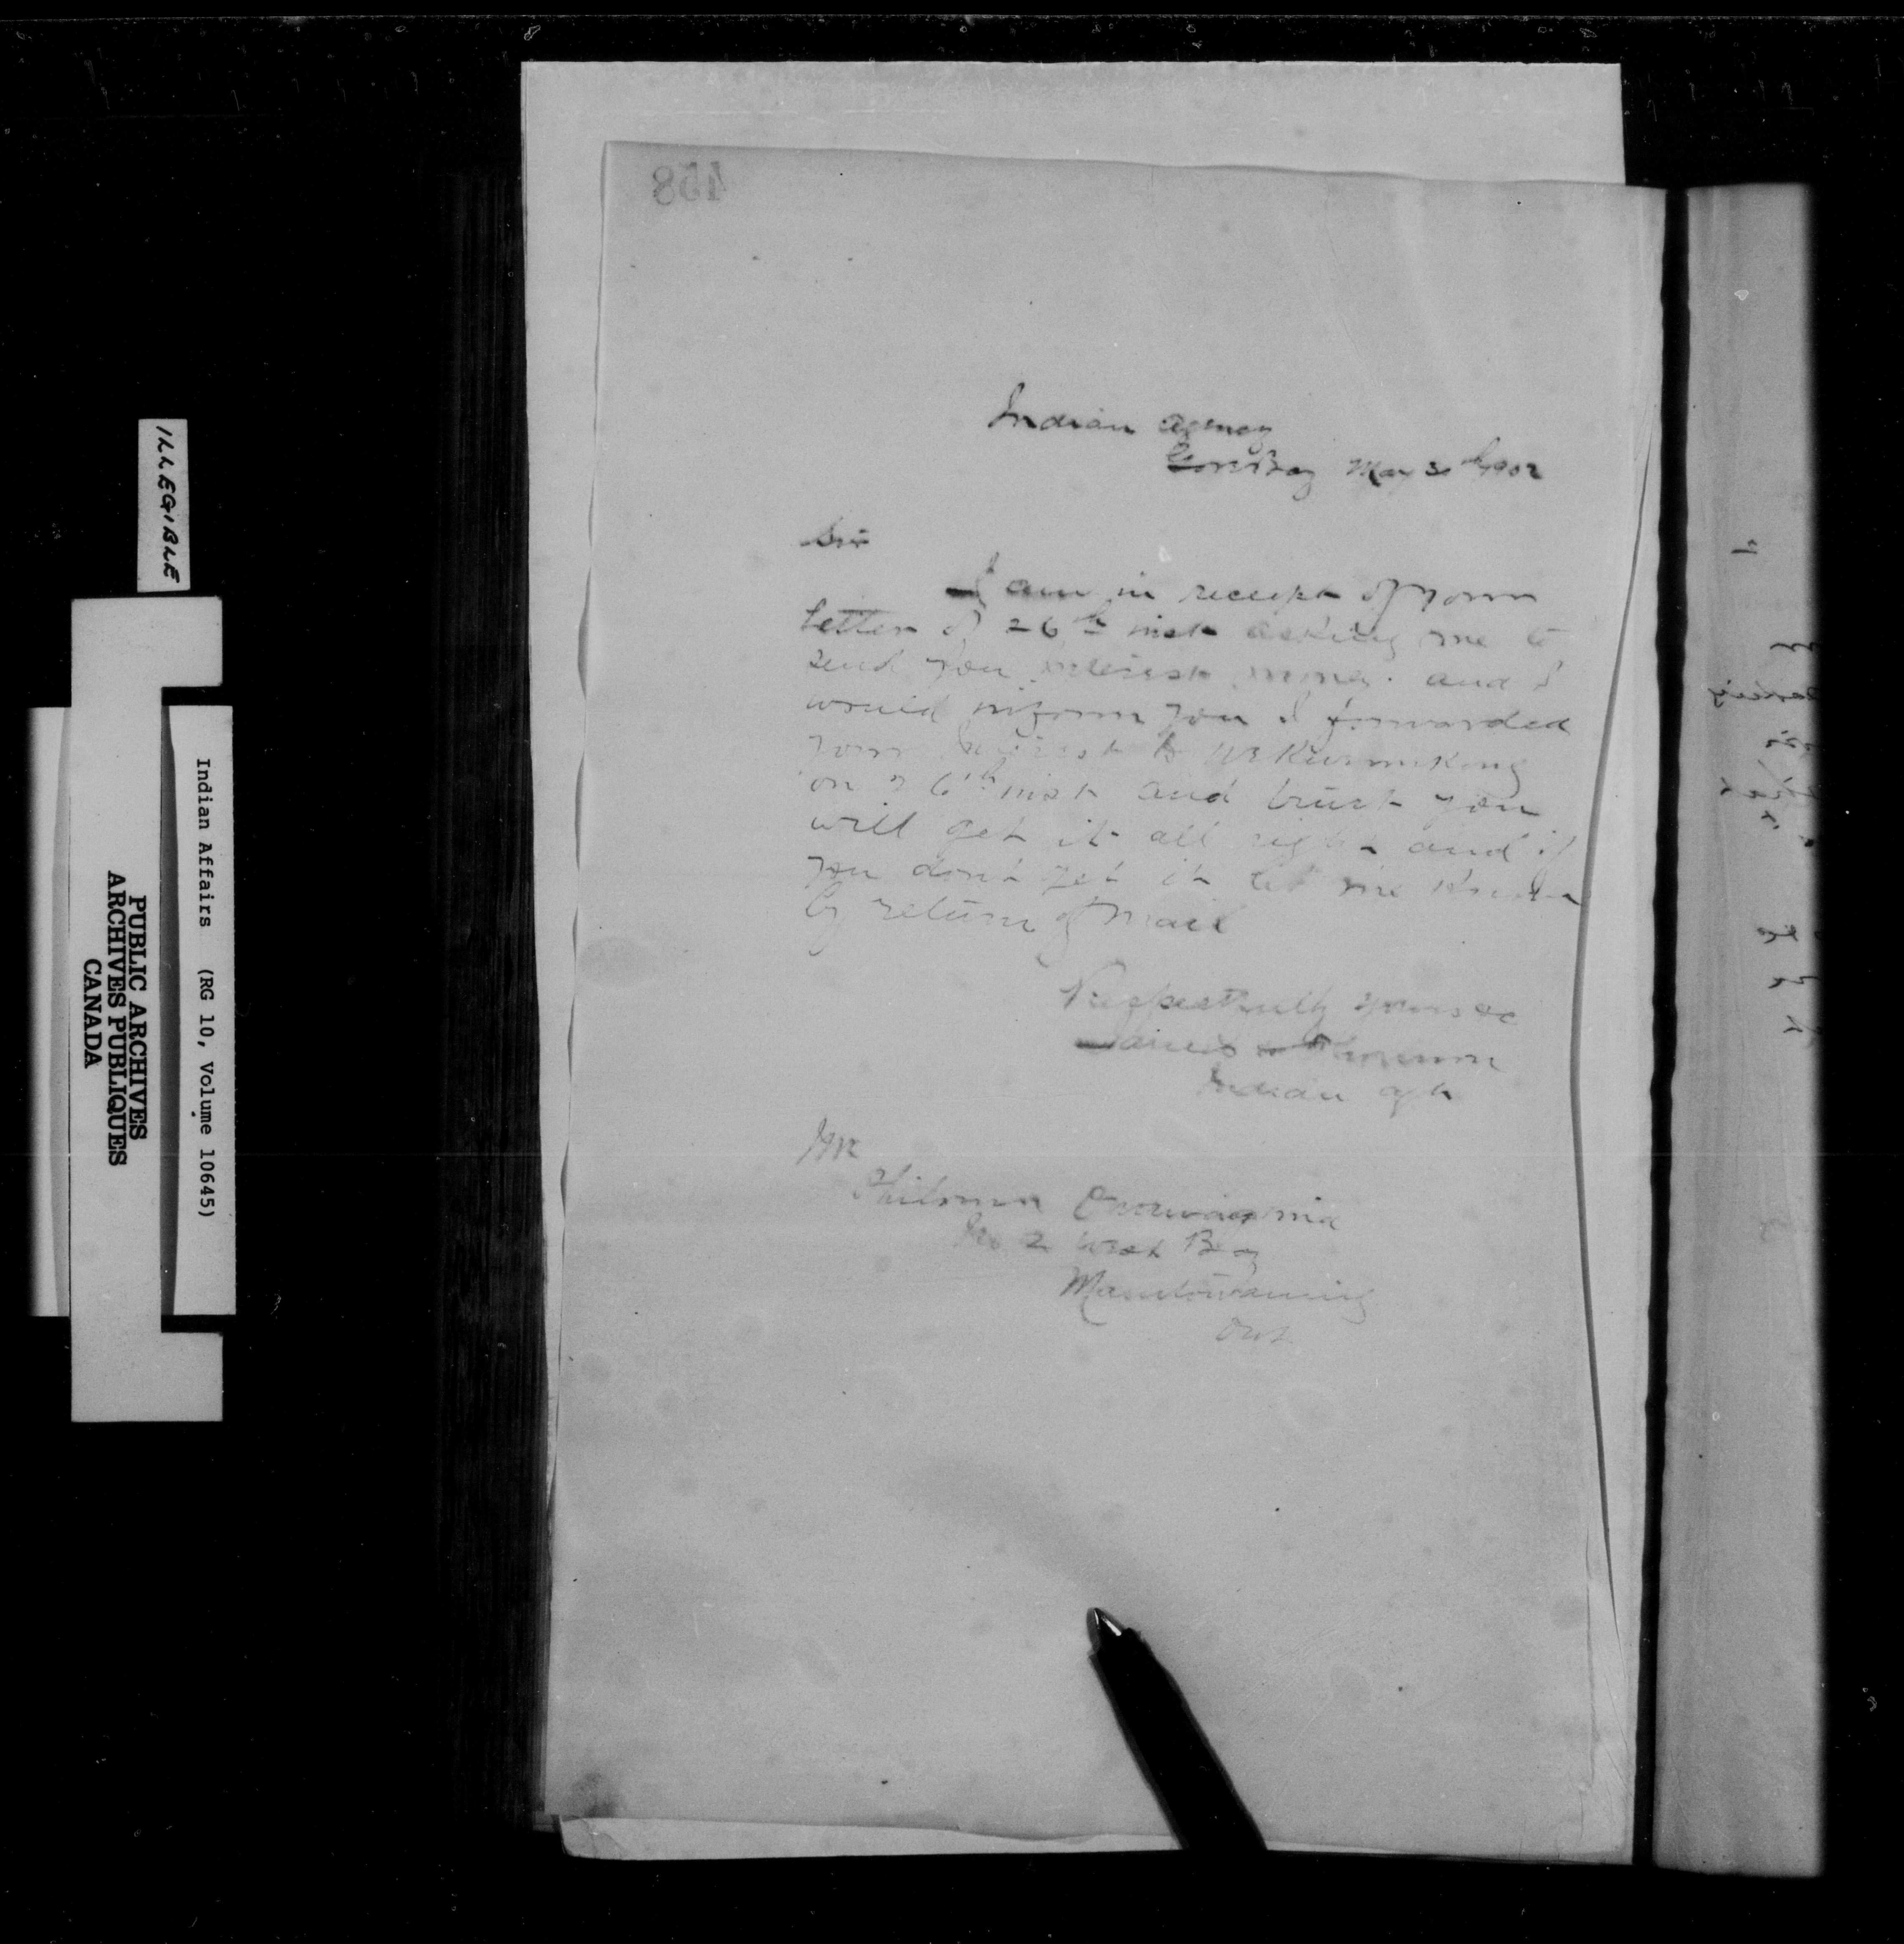 458
Indian Agency
Gore Bay May 30th 1902
Sir
I am in receipt of your
letter of 26th inst asking me to
send you interest money. and I
would inform you I forwarded
your Interest to
on 26th inst and trust you
will get it all right and if
you dont get it let me know
by return of mail
Respectfully yours &c
Indian agt
Mr
West Bay
Manitowaning
Ont
ILLEGIBLE
PUBLIC ARCHIVES
ARCHIVES PUBLIQUES
CANADA
Indian Affairs (RG 10, Volume 10645)